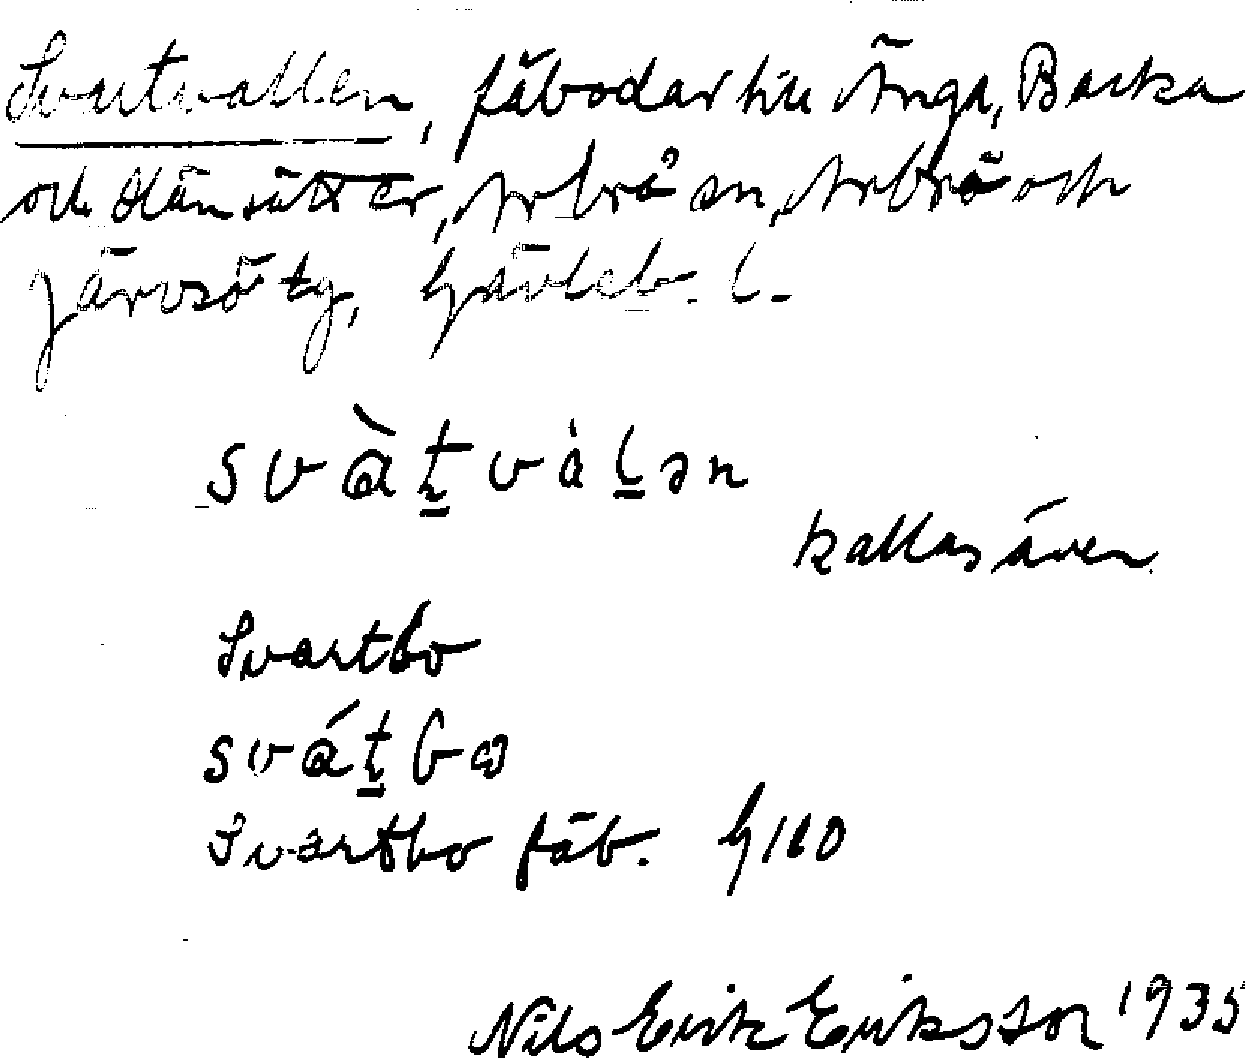 Svartvallen, fäbodar till Änga, Backa
och Hänsätter, Arbrå sn, Arbrå och
Järvsö tg, Gävleb. l.
svàt̠vàl̠ən
kallas även
Svartbo
svát̠bω
Svartbo fäb. G160
Nils Erik Eriksson 1935